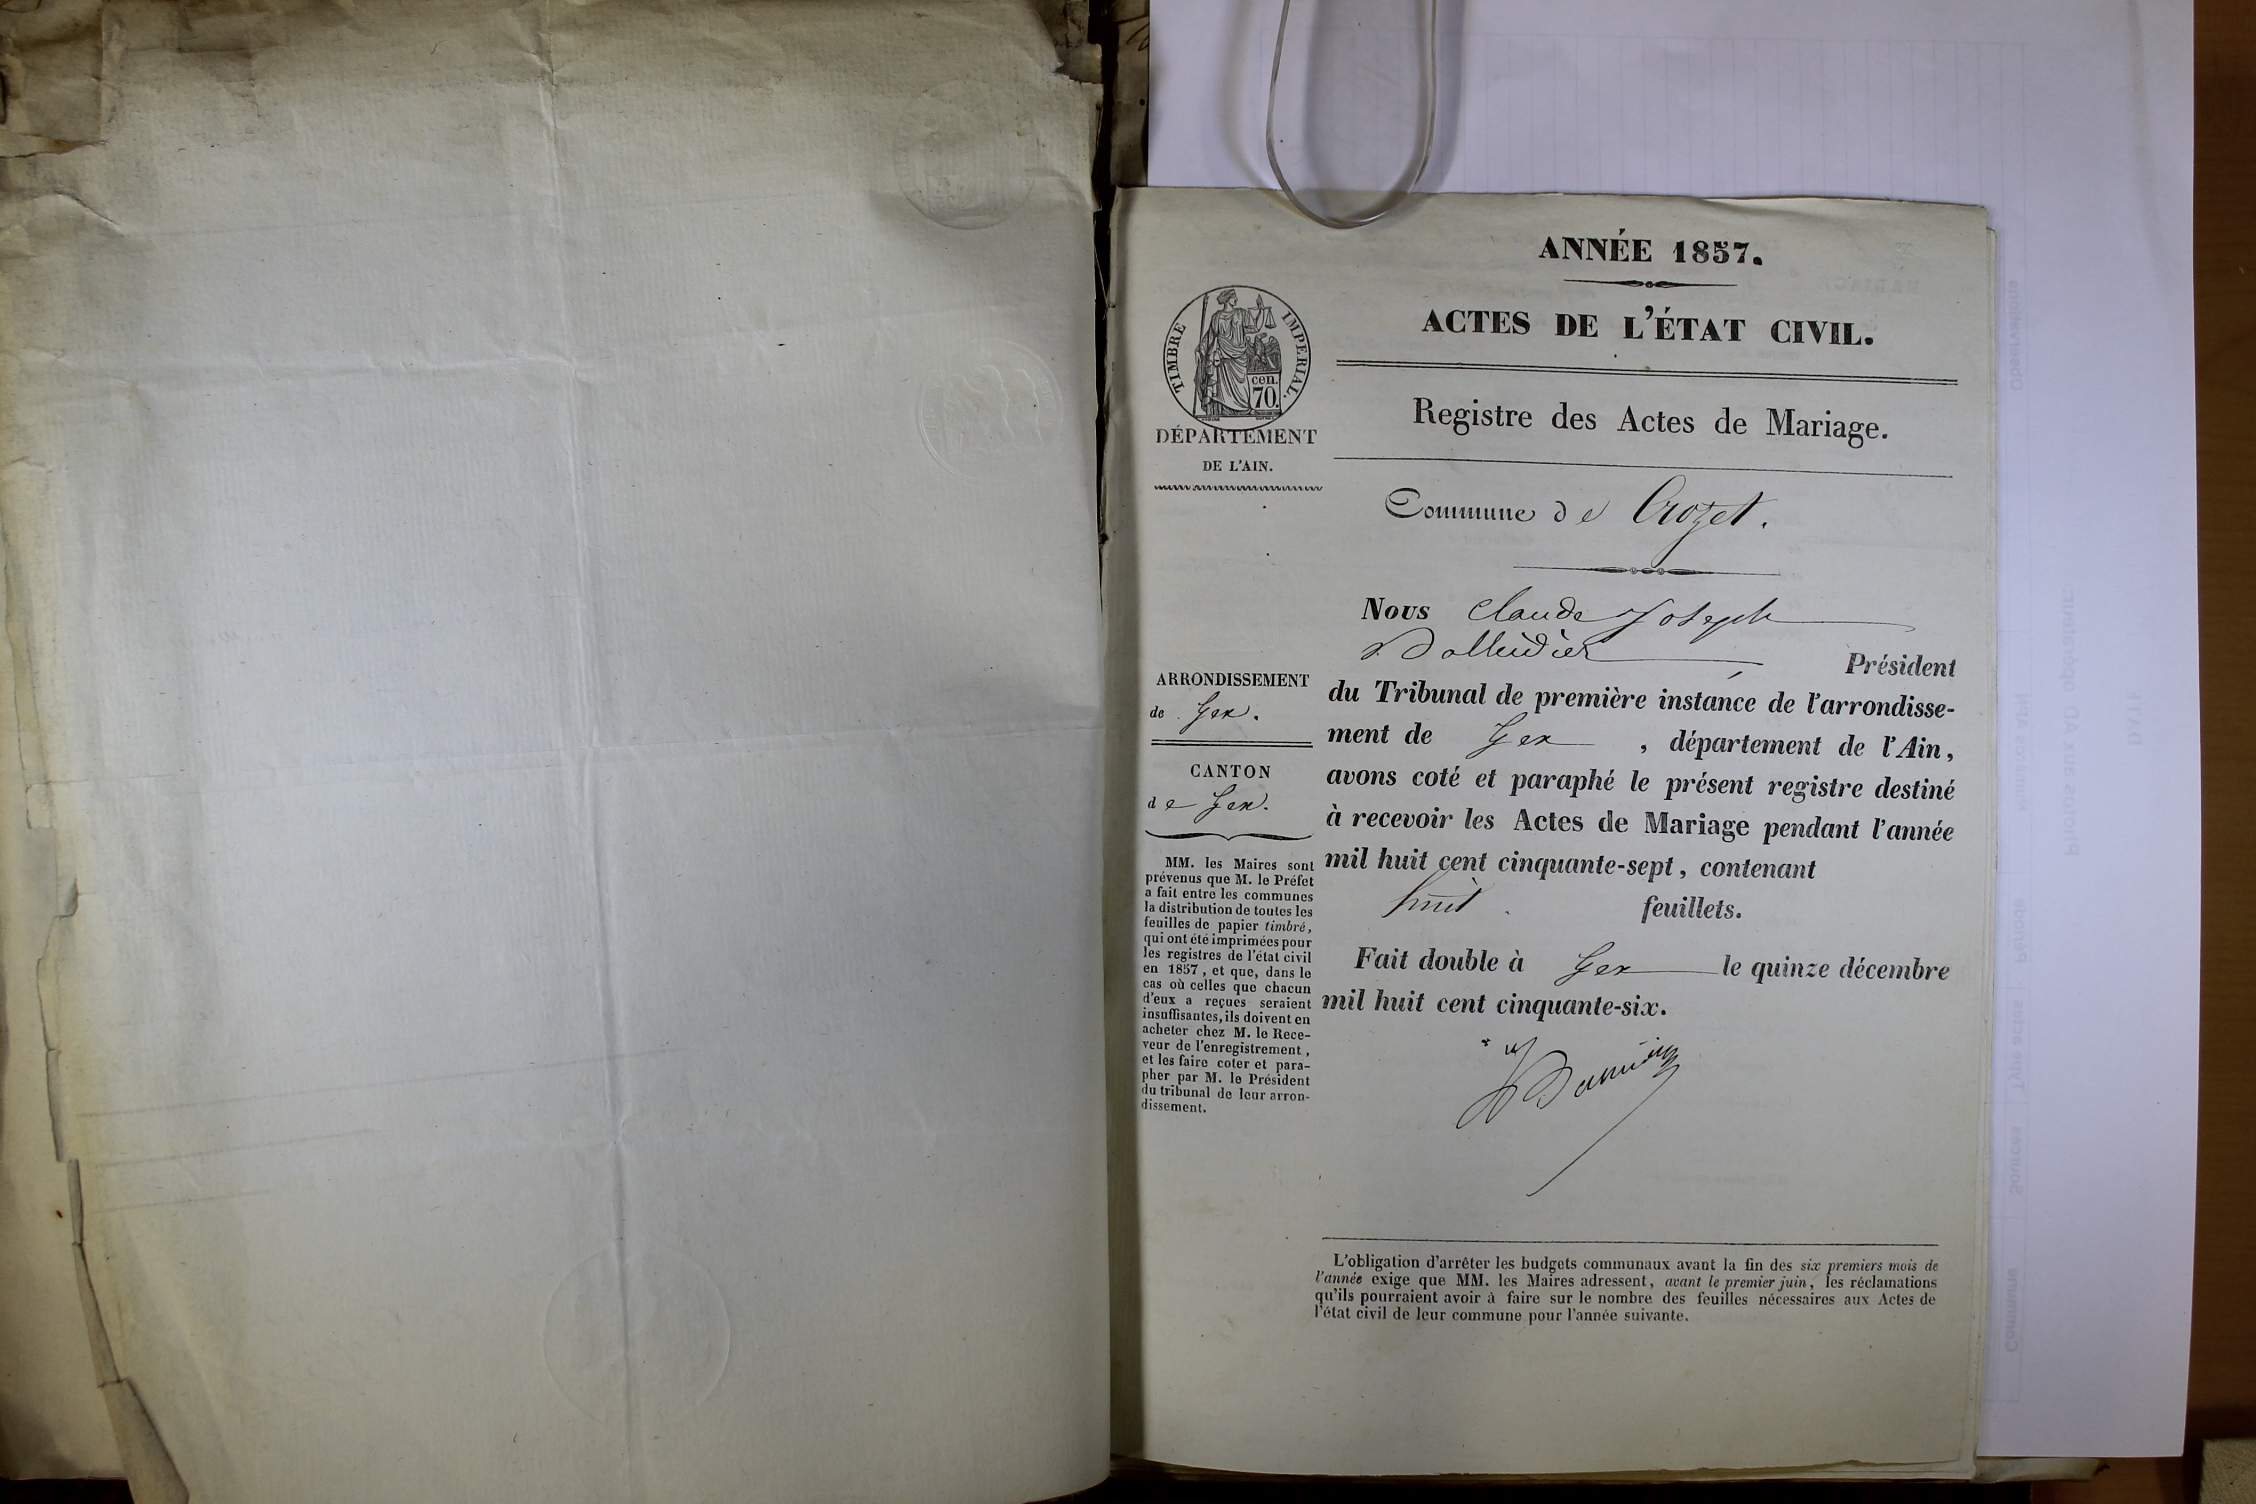 ANNÉE 1857.
ACTES DE L'ÉTAT CIVIL.
TIMBRE IMPERIAL.
cen.
70.
DÉPARTEMENT
DE L'AIN.
Registre des Actes de Mariage.
Commune de Crozet.
Nous Claude Joseph
Président
du Tribunal de première instance de l'arrondisse-
ment de Gex, département de l'Ain,
avons coté et paraphé le présent registre destiné
à recevoir les Actes de Mariage pendant l'année
mil huit cent cinquante-sept, contenant
huit feuillets.
Fait double à Gex le quinze décembre
mil huit cent cinquante-six.
ARRONDISSEMENT
de Gex.
CANTON
de Gex.
MM. les Maires sont
prévenus que M. le Préfet
a fait entre les communes
la distribution de toutes les
feuilles de papier timbré,
qui ont été imprimées pour
les registres de l'état civil
en 1857, et que, dans le
cas où celles que chacun
d'eux a reçues seraient
insuffisantes, ils doivent en
acheter chez M. le Rece-
veur de l'enregistrement,
et les faire coter et para-
pher par M. le Président
du tribunal de leur arron-
dissement.
L'obligation d'arrêter les budgets communaux avant la fin des six premiers mois de
l'année exige que MM. les Maires adressent, avant le premier juin, les réclamations
qu'ils pourraient avoir à faire sur le nombre des feuilles nécessaires aux Actes de
l'état civil de leur commune pour l'année suivante.